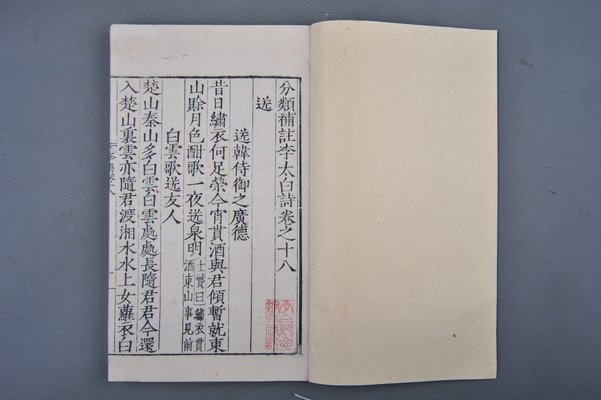 分類補註李太白詩卷之十八
送
送韓侍御之廣德
昔日繡衣何足榮今宵貰酒與君傾暫就東
山賒月色酣歌一夜送泉明士贇曰繡衣貰
酒東山事見前
白雲歌送友人
楚山秦山多白雲白雲處處長隨君君今還
入楚山裏雲亦隨君渡湘水水上女蘿衣白